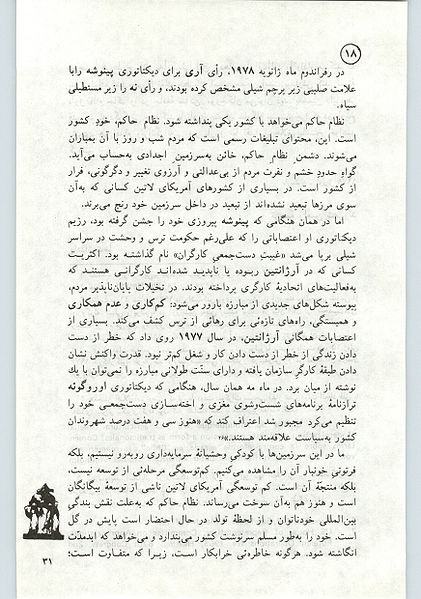 ۱۸
در رفراندوم ماه ژانویه ۱۹۷۸، رأی آری برای دیکتاتوری پینوشه رابا
علامت صلیبی زیر پرچم شیلی مشخص کرده بودند، و رأی نه را زیر مستطیلی
سیاه.
نظام حاکم می‌خواهد با کشور یکی پنداشته شود. نظام حاکم، خود کشور
است. این، محتوای تبلیغات رسمی است که مردم شب و روز با آن بمباران
می‌شوند. دشمن نظام حاکم، خائن به‌سرزمین اجدادی به‌حساب می‌آید.
گواه حدود خشم و نفرت مردم از بی‌عدالتی و آرزوی تغییر و دگرگونی، فرار
از کشور است. در بسیاری از کشورهای آمریکای لاتین کسانی که به‌آن
سوی مرزها تبعید نشده‌اند از تبعید در داخل سرزمین خود رنج می‌برند.
اما در همان هنگامی که پینوشه پیروزی خود را جشن گرفته بود، رژیم
دیکتاتوری او اعتصاباتی را که علی‌رغم حکومت ترس و وحشت در سراسر
شیلی برپا می‌شد «غیبتِ دست‌جمعیِ کارگران» نام گذاشته بود. اکثریت
کسانی که در آرژانتین ربوده یا ناپدید شده‌اند کارگرانی هستند که
به‌فعالیت‌های اتحادیهٔ کارگری پرداخته بودند. در تخیلات پایان‌ناپذیر مردم،
پیوسته شکل‌های جدیدی از مبارزه بارور می‌شود: کم‌کاری و عدم همکاری
و همبستگی، راه‌های تازه‌ئی برای رهائی از ترس کشف می‌کند. بسیاری از
اعتصابات همگانی آرژانتین، در سال ۱۹۷۷ روی داد که خطر از دست
دادن زندگی از خطر از دست دادن کار و شغل کم‌تر نبود. قدرت واکنش نشان
دادن طبقهٔ کارگر سازمان یافته و دارای سنّت طولانی مبارزه را نمی‌توان با یك
نوشته از میان برد. در ماه مه همان سال، هنگامی که دیکتاتوری اوروگوئه
ترازنامهٔ برنامه‌های شست‌وشوی مغزی و اخته‌سازی دست‌جمعی خود را
تنظیم می‌کرد مجبور شد اعتراف کند که «هنوز سی و هفت درصد شهروندان
کشور به‌سیاست علاقه‌مند هستند.»۲۶
ما در این سرزمین‌ها با کودکی وحشیانهٔ سرمایه‌داری روبه‌رو نیستیم، بلکه
فرتوتی خونبار آن را مشاهده می‌کنیم. کم‌توسعگی مرحله‌ئی از توسعه نیست،
بلکه منتجّهٔ آن است. کم توسعگی آمریکای لاتین ناشی از توسعهٔ بیگانگان
است و هنوز هم به‌آن سوخت می‌رساند. نظام حاکم که به‌علت نقش بندگی
بین‌المللی خودناتوان و از لحظهٔ تولد در حال احتضار است پایش در گل
است. خود را به‌طور مسلم سرنوشت کشور می‌پندارد و می‌خواهد که ابدمدّت
انگاشته شود. هرگونه خاطره‌ئی خرابکار است، زیرا که متفاوت است؛
۳۱